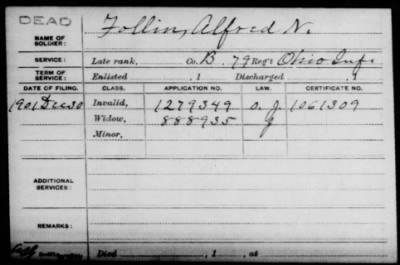 DEAD
NAME OF SOLDIER: Follin, Alfred N.
SERVICE: Late rank, Co. B, 79 Reg't Ohio Inf.
TERM OF SERVICE: Enlisted , 1 Discharged , 1
DATE OF FILING. CLASS. APPLICATION NO. LAW. CERTIFICATE NO.
1901 Dec 30 Invalid, 1279349 1061309
Widow, 888935
Minor,
ADDITIONAL SERVICES:
REMARKS:
Died , 1 , at